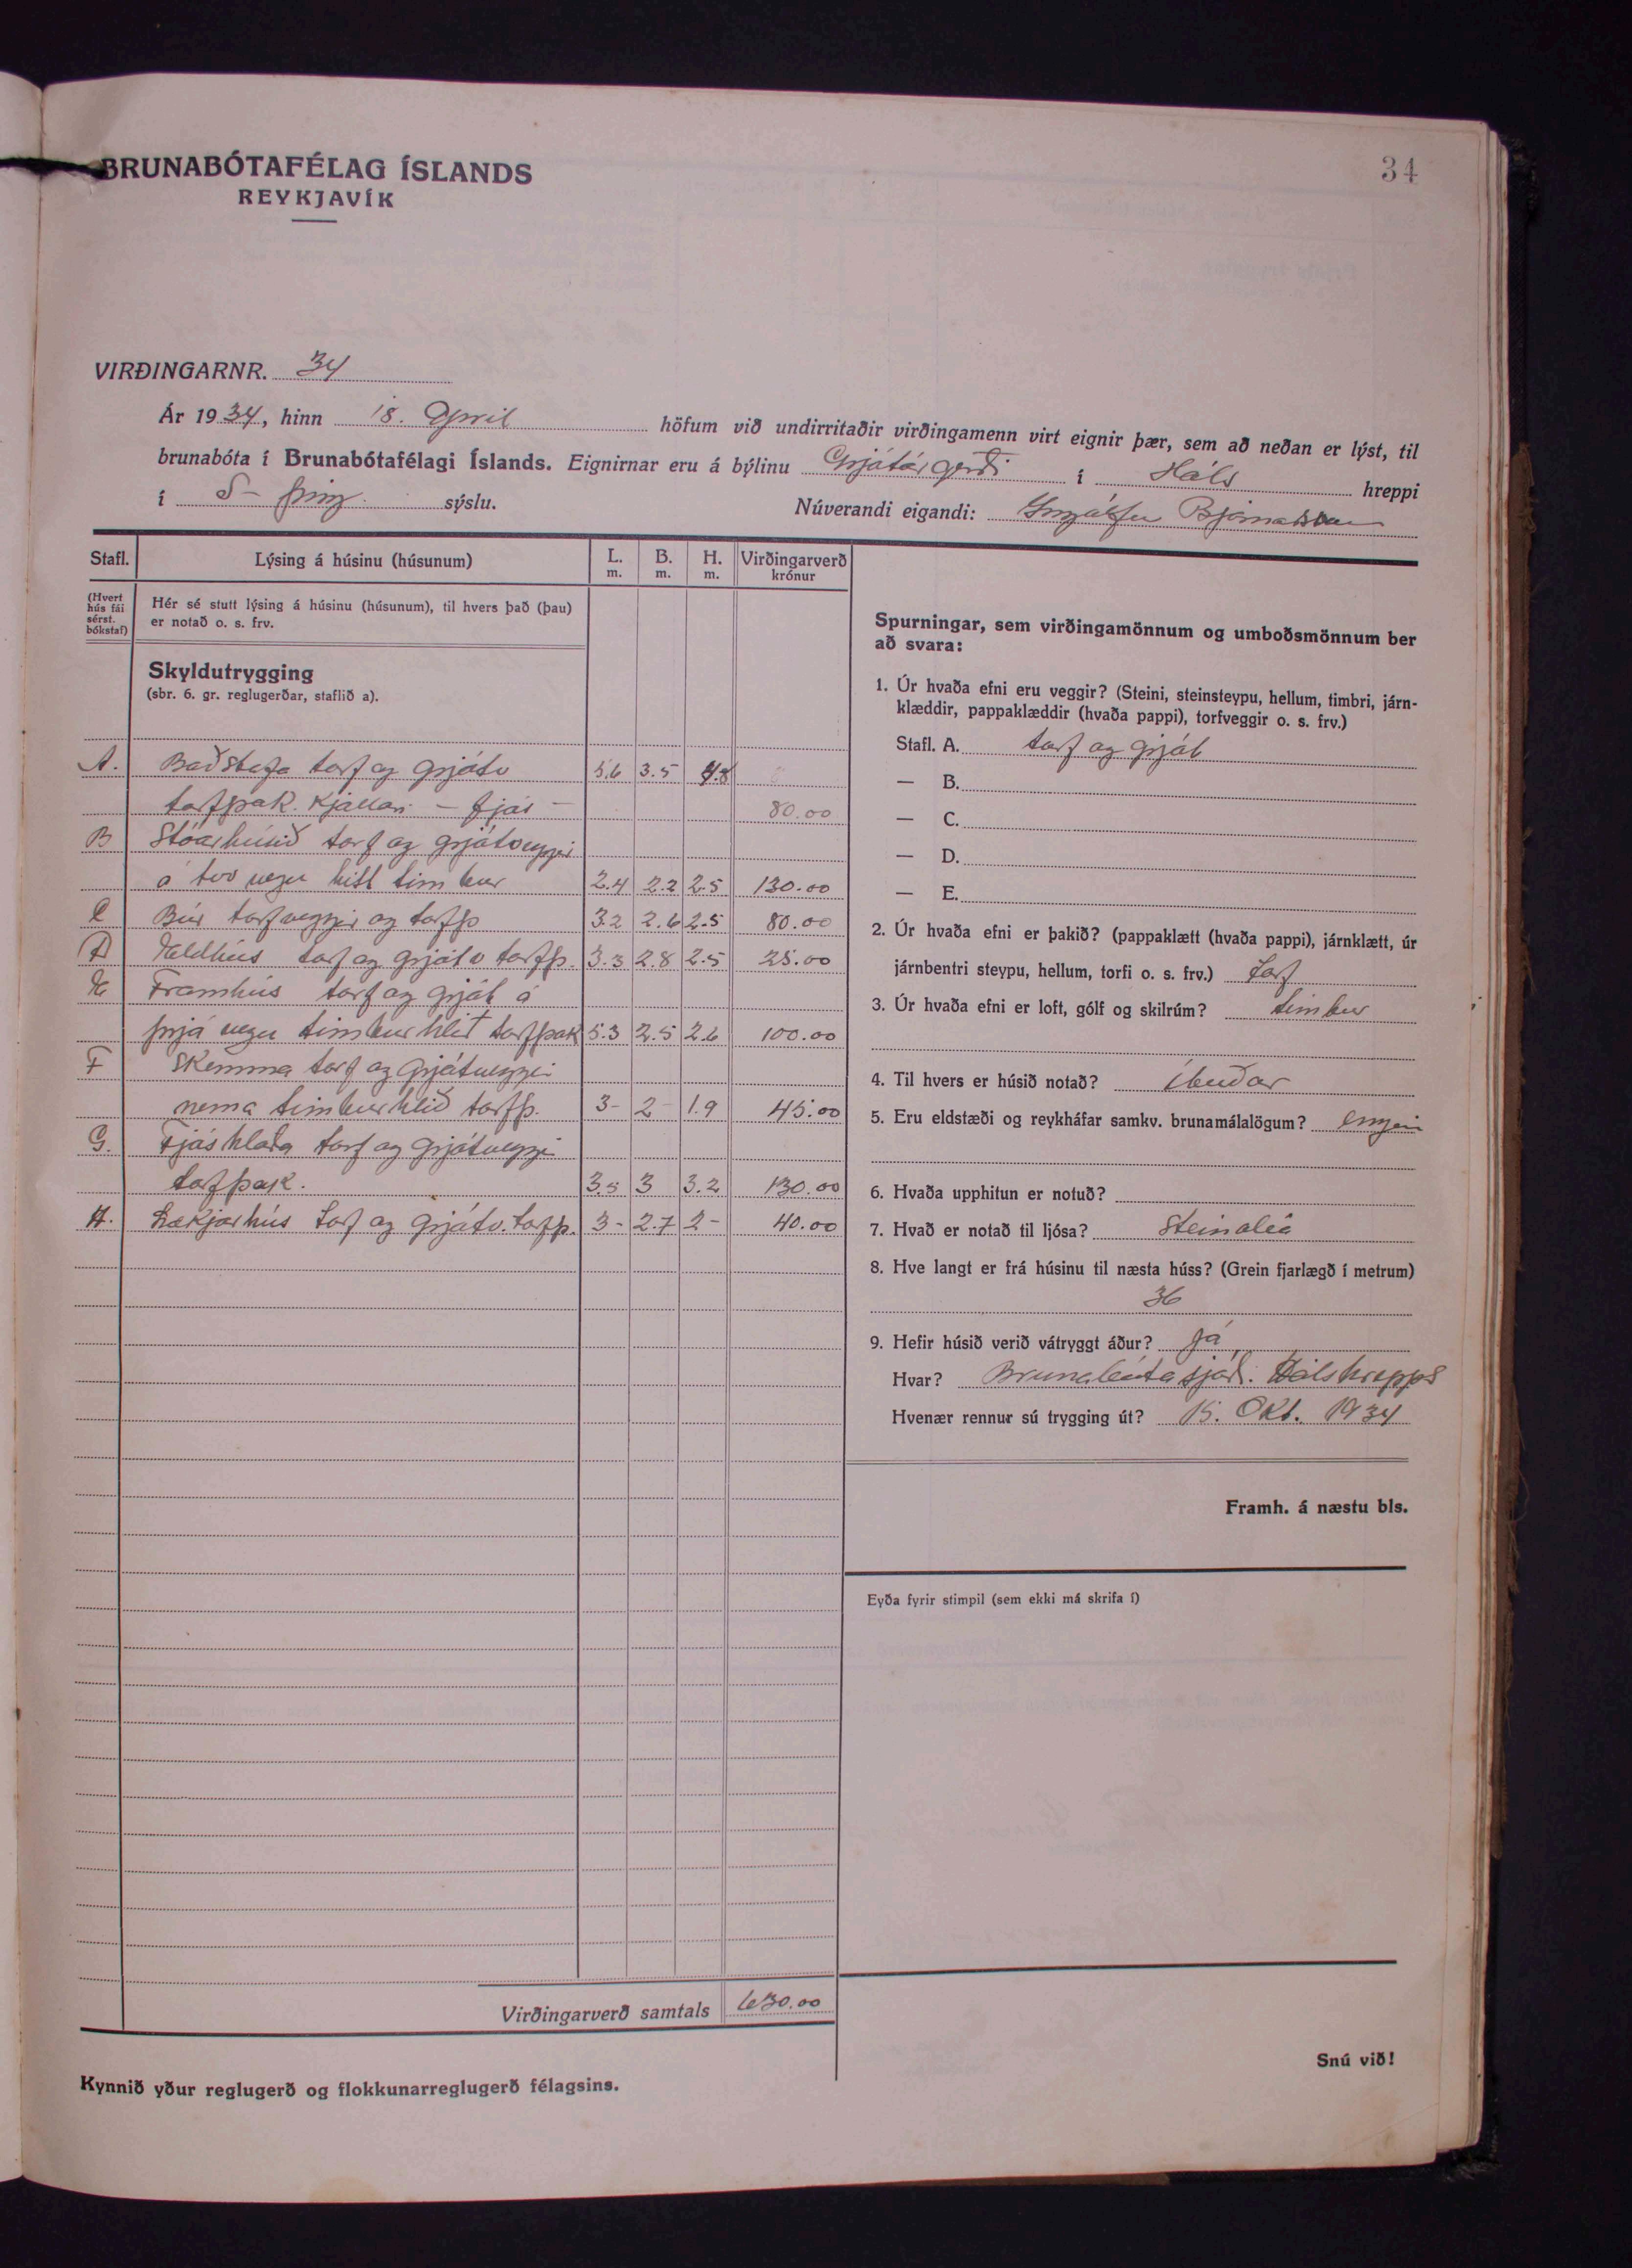 BRUNABÓTAFÉLAG ÍSLANDS
REYKJAVÍK
34
VIRÐINGARNR. 34
Ár 1934, hinn 18. Apríl höfum við undirritaðir virðingamenn virt eignir þær, sem að neðan er lýst, til
brunabóta í Brunabótafélagi Íslands. Eignirnar eru á býlinu Grjótárgerði í Háls hreppi
í S- þing. sýslu. Núverandi eigandi: Ingólfur Bjarnason
Stafl. Lýsing á húsinu (húsunum) L. m. B. m. H. m. Virðingarverð krónur
(Hvert hús fái sérst. bókstaf)
Hér sé stutt lýsing á húsinu (húsunum), til hvers það (þau)
er notað o. s. frv.
Skyldutrygging
(sbr. 6. gr. reglugerðar, staflið a).
A. Baðstofa torf og grjótv 5.6 3.5 4.8
torfþak. Kjallari - fjós - 80.00
B Stóarhúsið torf og grjótveggir
á tvo vegu hitt timbur 2.4 2.2 2.5 130.00
C Búr torfveggir og torfþ 3.2 2.6 2.5 80.00
D Eldhús torf og grjótv torfþ. 3.3 2.8 2.5 25.00
E Framhús torf og grjót á
þrjá vegu timburhlið torfþak 5.3 2.5 2.6 100.00
F Skemma torf og grjótveggir
nema timburhlið torfþ. 3- 2- 1.9 45.00
G. Fjóshlaða torf og grjótveggi
torfþak. 3.5 3 3.2 130.00
H. Lækjarhús torf og grjótv. torfþ. 3- 2.7 2- 40.00
Virðingarverð samtals 630.00
Kynnið yður reglugerð og flokkunarreglugerð félagsins.
Spurningar, sem virðingamönnum og umboðsmönnum ber
að svara:
1. Úr hvaða efni eru veggir? (Steini, steinsteypu, hellum, timbri, járn-
klæddir, pappaklæddir (hvaða pappi), torfveggir o. s. frv.)
Stafl. A. torf og grjót
— B.
— C.
— D.
— E.
2. Úr hvaða efni er þakið? (pappaklætt (hvaða pappi), járnklætt, úr
járnbentri steypu, hellum, torfi o. s. frv.) Torf
3. Úr hvaða efni er loft, gólf og skilrúm? timbur
4. Til hvers er húsið notað? Íbúðar
5. Eru eldstæði og reykháfar samkv. brunamálalögum? engin
6. Hvaða upphitun er notuð?
7. Hvað er notað til ljósa? Steinolía
8. Hve langt er frá húsinu til næsta húss? (Grein fjarlægð í metrum)
36
9. Hefir húsið verið vátryggt áður? Já
Hvar? Brunabótasjóð. Hálshrepps
Hvenær rennur sú trygging út? 15. Okt. 1934
Framh. á næstu bls.
Eyða fyrir stimpil (sem ekki má skrifa í)
Snú við!